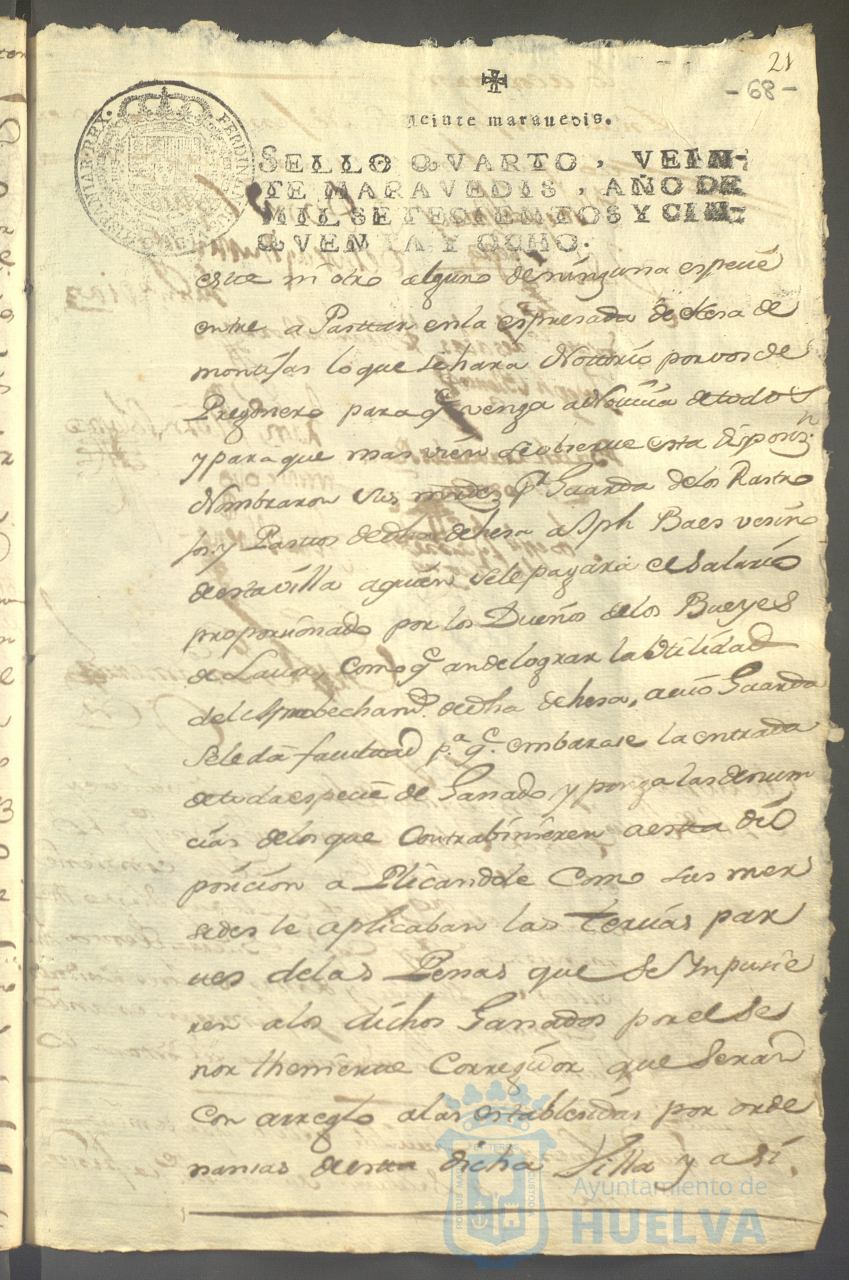 21
- 68 -
Veinte marauedis.
SELLO QVARTO, VEIN-
TE MARAVEDIS, AÑO DE
MIL SETECIENTOS Y CIN-
QVENTA Y OCHO.
HISPANIAR. REX. FERDINAN
este ni otro alguno de ninguna especie
entre a Pastar en la espresada dehesa de
montijas lo que se hara Nottorio por vos de
Pregonero para q.e venga a Noticia de todos
y para que mas vien se observe esta disposiz.n
Nombraron sus mrdez p.r Guarda de los Rastro
jos y Pastos de dha dehesa a Jph Baes vesino
de esta villa a quien se le pagará el salario
proporsionado por los Dueños de los Bueyes
de Lavor, como q.e an de lograr la Utilidad
del Aprobecham.to de dha dehesa, a cuio Guarda
se le da facultad p.a q.e embarase la entrada
de toda especie de Ganado, y ponga las denun
cias de los que Contrabinieren a esta dis
posicion a Plicandole Como sus mer
sedes le aplicaban las Tercias par
tes de las Penas que se Ynpusie
ren a los dichos Ganados por el Se
ñor theniente Corregidor que seran
Con arreglo a las establesidas por orde
nansas de esta dicha Villa y asi
Ayuntamiento de
HUELVA